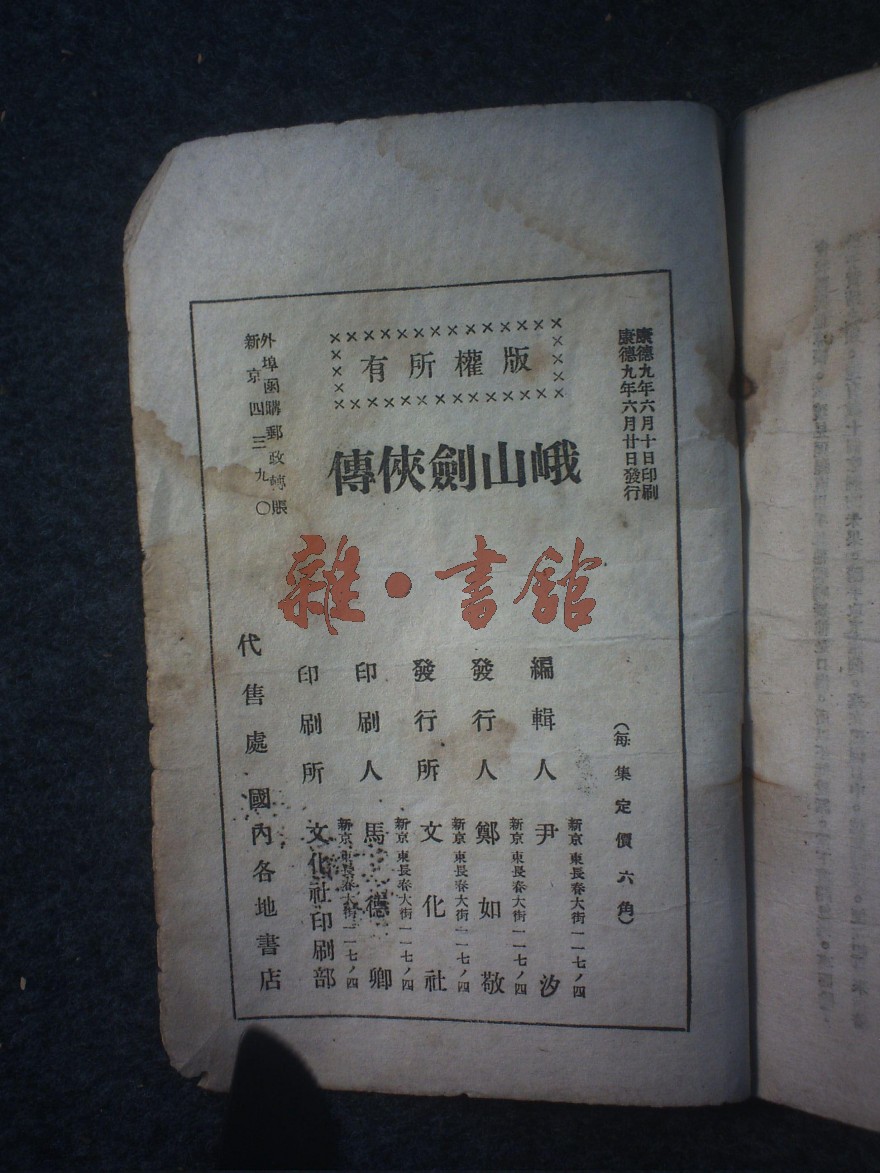 康德九年六月十日印刷
康德九年六月廿日發行
版權所有
峨山劍俠傳
外埠函購郵政轉賬
新京四三九〇
雜·書館
(每集定價六角)
新京東長春大街一一七ノ四
編輯人 尹汐
新京東長春大街一一七ノ四
發行人 鄭如敬
新京東長春大街一一七ノ四
發行所 文化社
新京東長春大街一一七ノ四
印刷人 馬德卿
新京東長春大街一一七ノ四
印刷所 文化社印刷部
代售處 國內各地書店